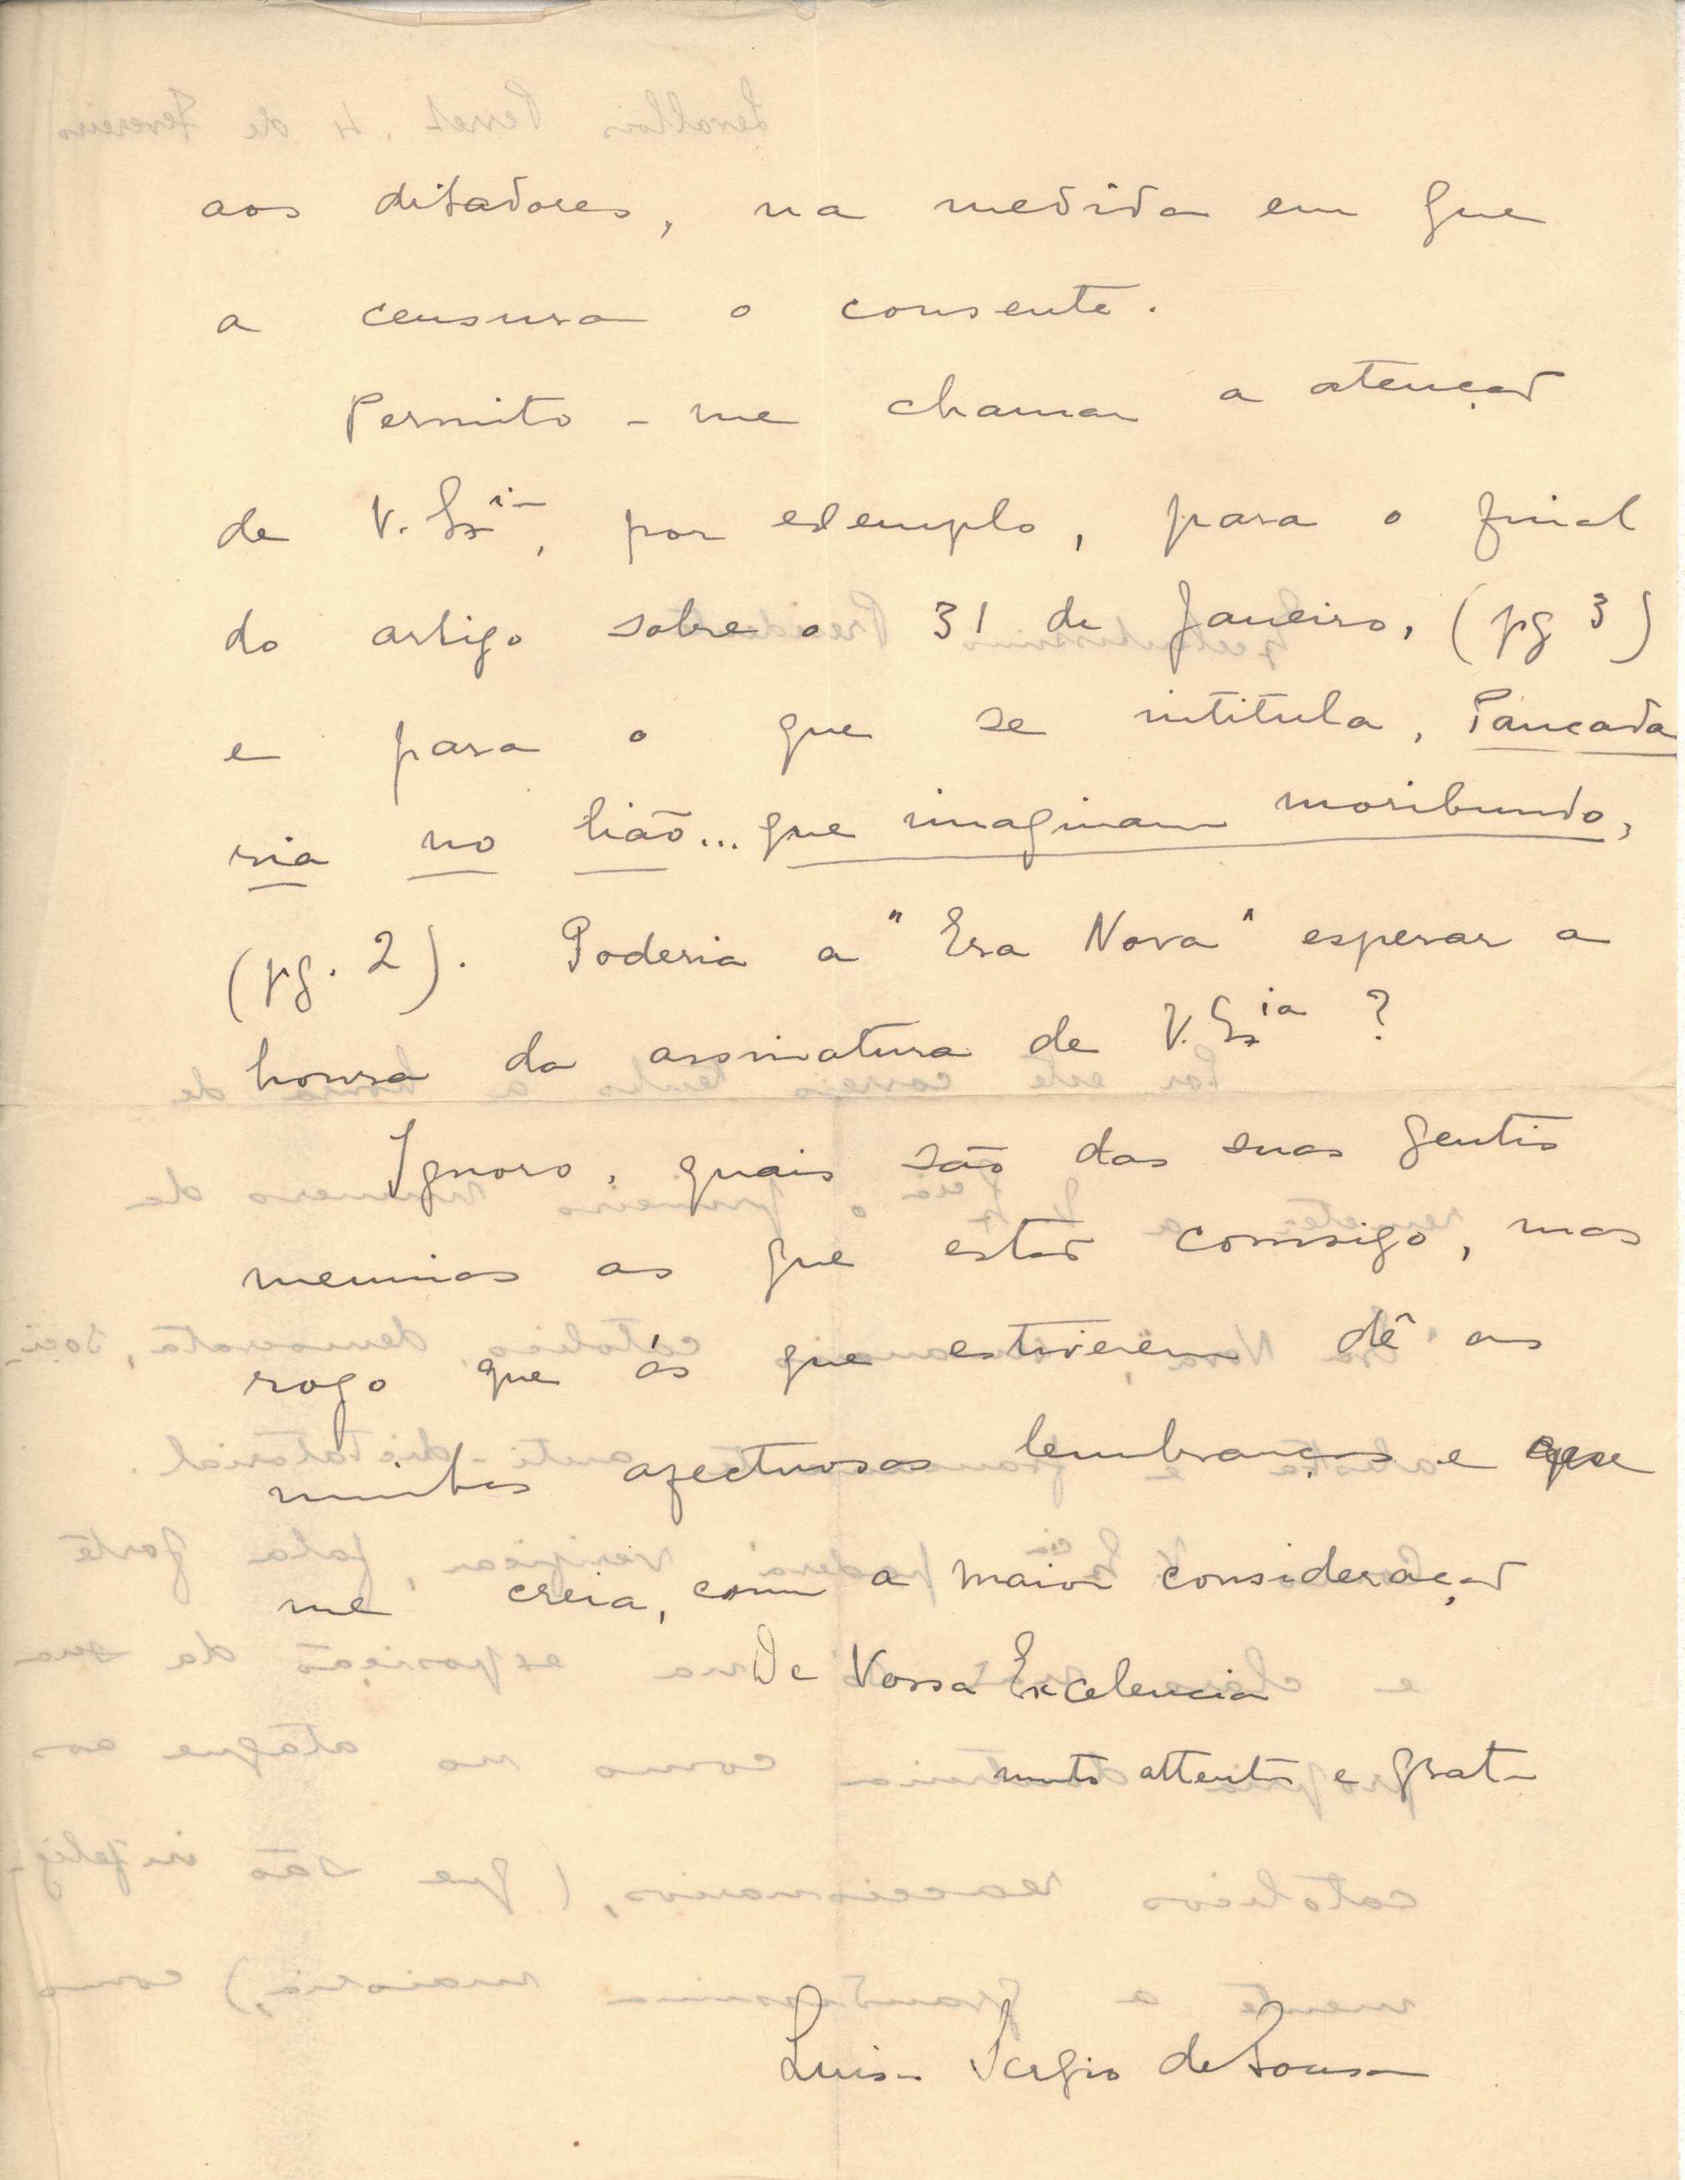 aos ditadores, na medida em que
a censura o consente.
Permito-me chamar a atenção
de V. Exia, por exemplo, para o final
do artigo sobre o 31 de Janeiro, (pg 3)
e para o que se intitula, Pancada
ria no lião... que imaginam moribundo,
(pg. 2). Poderia a "Era Nova" esperar a
honra da assinatura de V. Exia ?
Ignoro, quais são das suas gentis
meninas as que estão comsigo, mas
rogo que ás que estiverem dê as
minhas afectuosas lembranças e que
me creia, com a maior consideração
De Vossa Excelencia
mto attento e grato
Luis Sergio de Sousa